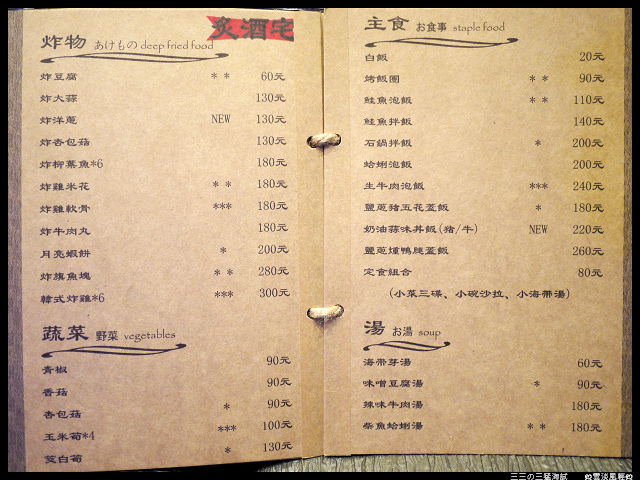 炙酒宅
炸物 あけもの deep fried food
炸豆腐 ** 60元
炸大蒜 130元
炸洋蔥 NEW 130元
炸杏包菇 130元
炸柳葉魚*6 180元
炸雞米花 ** 180元
炸雞軟骨 *** 180元
炸牛肉丸 180元
月亮蝦餅 * 200元
炸旗魚塊 ** 280元
韓式炸雞*6 *** 300元
蔬菜 野菜 vegetables
青椒 90元
香菇 90元
杏包菇 * 90元
玉米筍*4 *** 100元
茭白筍 * 130元
主食 お食事 staple food
白飯 20元
烤飯團 ** 90元
鮭魚泡飯 ** 110元
鮭魚拌飯 140元
石鍋拌飯 * 200元
蛤蜊泡飯 200元
生牛肉泡飯 *** 240元
鹽蔥豬五花蓋飯 * 180元
奶油蒜味丼飯(豬/牛) NEW 220元
鹽蔥燻鴨腿蓋飯 260元
定食組合 80元
(小菜三碟、小碗沙拉、小海帶湯)
湯 お湯 soup
海帶芽湯 60元
味噌豆腐湯 * 90元
辣味牛肉湯 180元
柴魚蛤蜊湯 ** 180元